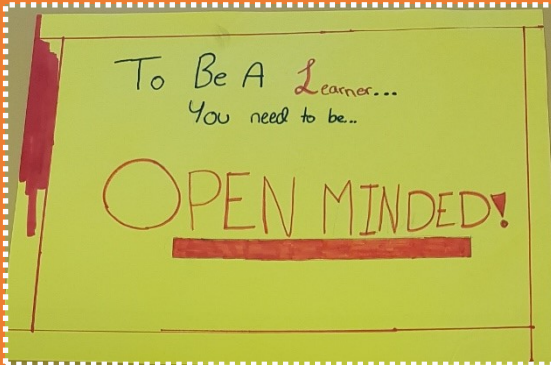 To Be A Learner...
You need to be...
OPEN MINDED!